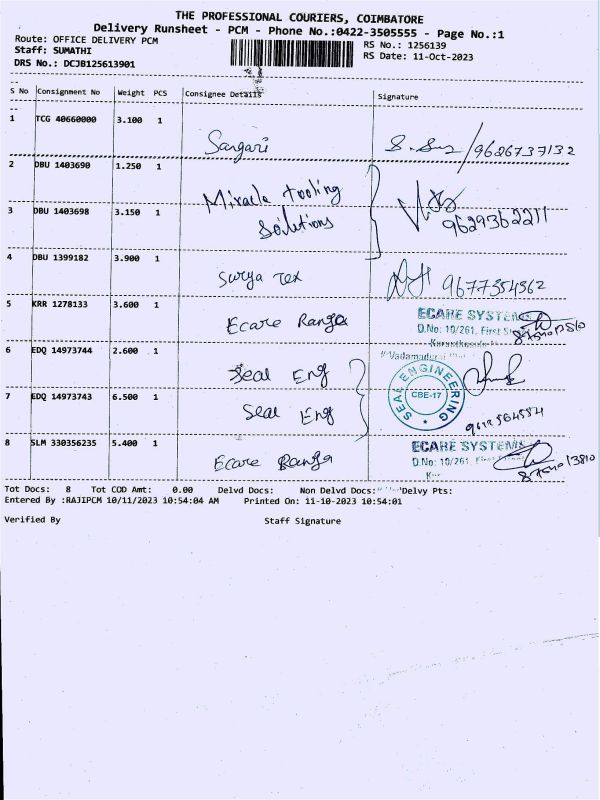 THE PROFESSIONAL COURIERS, COIMBATORE
Delivery Runsheet - PCM - Phone No.:0422-3505555 - Page No.:1
Route: OFFICE DELIVERY PCM
RS No.: 1256139
Staff: SUMATHI
RS Date: 11-Oct-2023
DRS No.: DCJB125613901
S No Consignment No Weight PCS Consignee Details Signature
1 TCG 40660000 3.100 1
Sangari 9626737132
2 DBU 1403690 1.250 1
Miracle tooling
3 DBU 1403698 3.150 1
Solutions 9629362211
4 DBU 1399182 3.900 1
Surya Tex 9677354362
5 KRR 1278133 3.600 1
Ecare Ranga
ECARE SYSTEMS
D.No: 10/261, First
6 EDQ 14973744 2.600 1
Seal Eng
SEAL ENGINEERING
CBE-17
7 EDQ 14973743 6.500 1
Seal Eng
8 SLM 330356235 5.400 1
Ecare Ranga
ECARE SYSTEMS
D.No: 10/261, First
Tot Docs: 8 Tot COD Amt: 0.00 Delvd Docs: Non Delvd Docs: Delvy Pts:
Entered By :RAJIPCM 10/11/2023 10:54:04 AM Printed On: 11-10-2023 10:54:01
Verified By Staff Signature